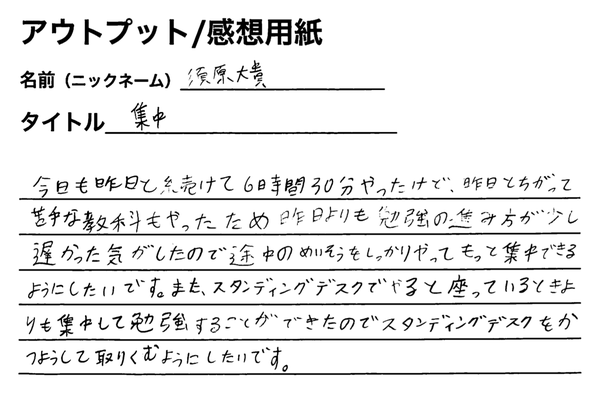 アウトプット/感想用紙
名前（ニックネーム） 須原大貴
タイトル 集中
今日も昨日と続けて6時間30分やったけど、昨日とちがって
苦手な教科もやったため昨日よりも勉強の進み方が少し
遅かった気がしたので途中のめいそうをしっかりやってもっと集中できる
ようにしたいです。また、スタンディングデスクでやると座っているときよ
りも集中して勉強することができたのでスタンディングデスクをか
つようして取りくむようにしたいです。